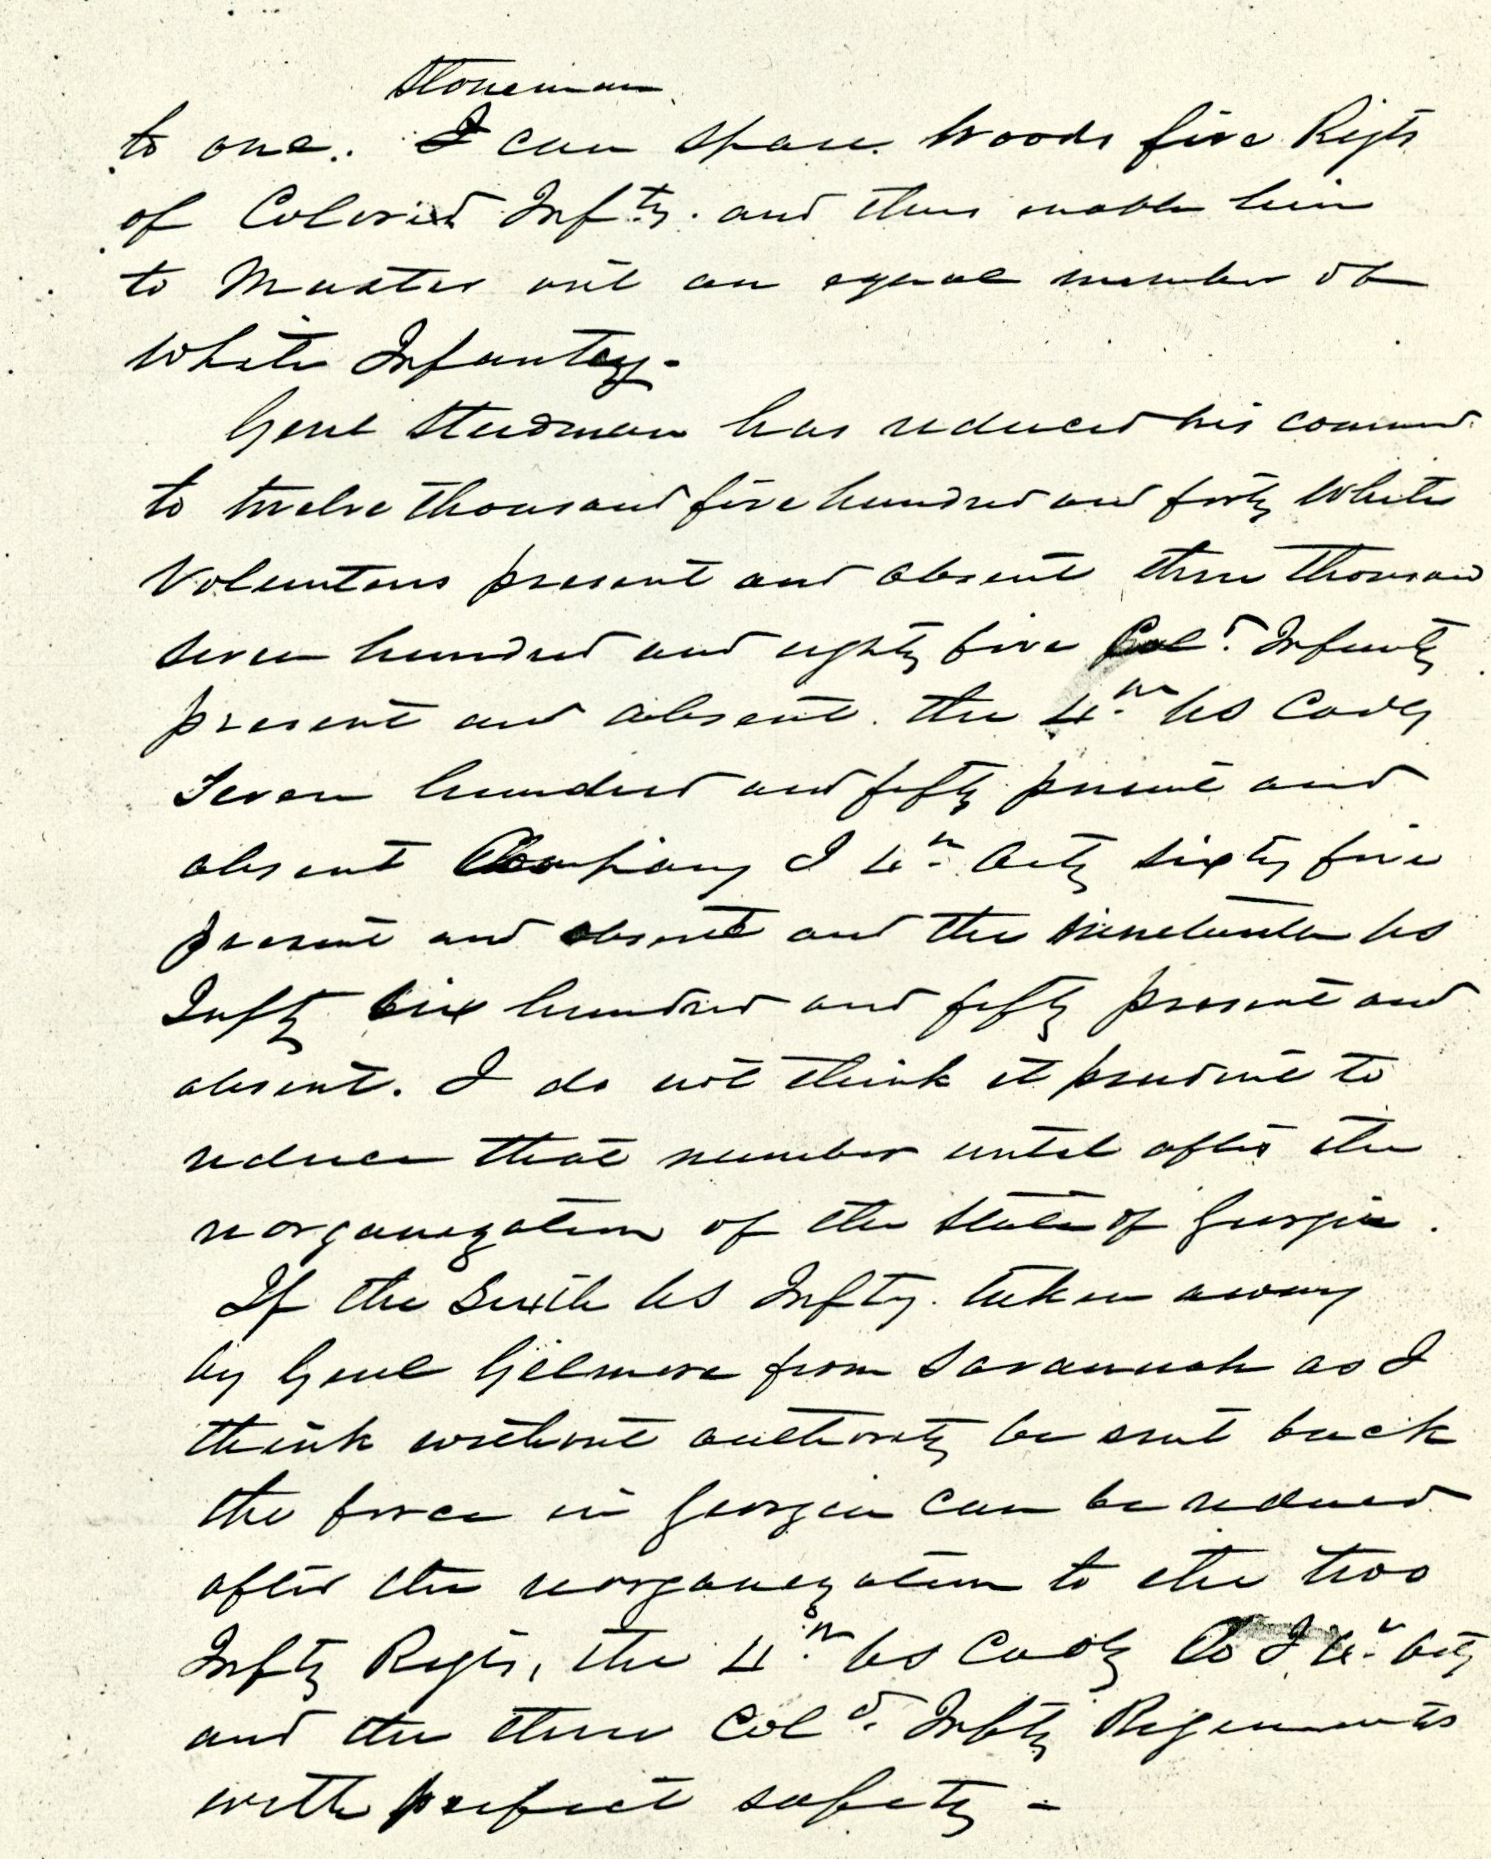 Stoneman
to one. I can spare Woods five Regts
of Colored Infty. and thus enable him
to Muster out an equal number of
White Infantry-
Genl Steedman has reduced his command
to twelve thousand five hundred and forty White
Volunteers present and absent three thousand
seven hundred and eighty five Cold. Infanty
present and absent. the 4th US Cavly
Seven hundred and fifty present and
absent Company I 4th Arty sixty five
present and absent and the sixteenth US
Infty six hundred and fifty present and
absent. I do not think it prudent to
reduce that number until after the
reorganization of the State of Georgia.
If the Sixth US Infty. taken away
by Genl Gilmore from Savannah as I
think without authority be sent back
the force in Georgia can be reduced
after the reorganization to the two
Infty Regts, the 4th US Cavly Co I 4th Arty
and the three Cold. Infty Regiments
with perfect safety -